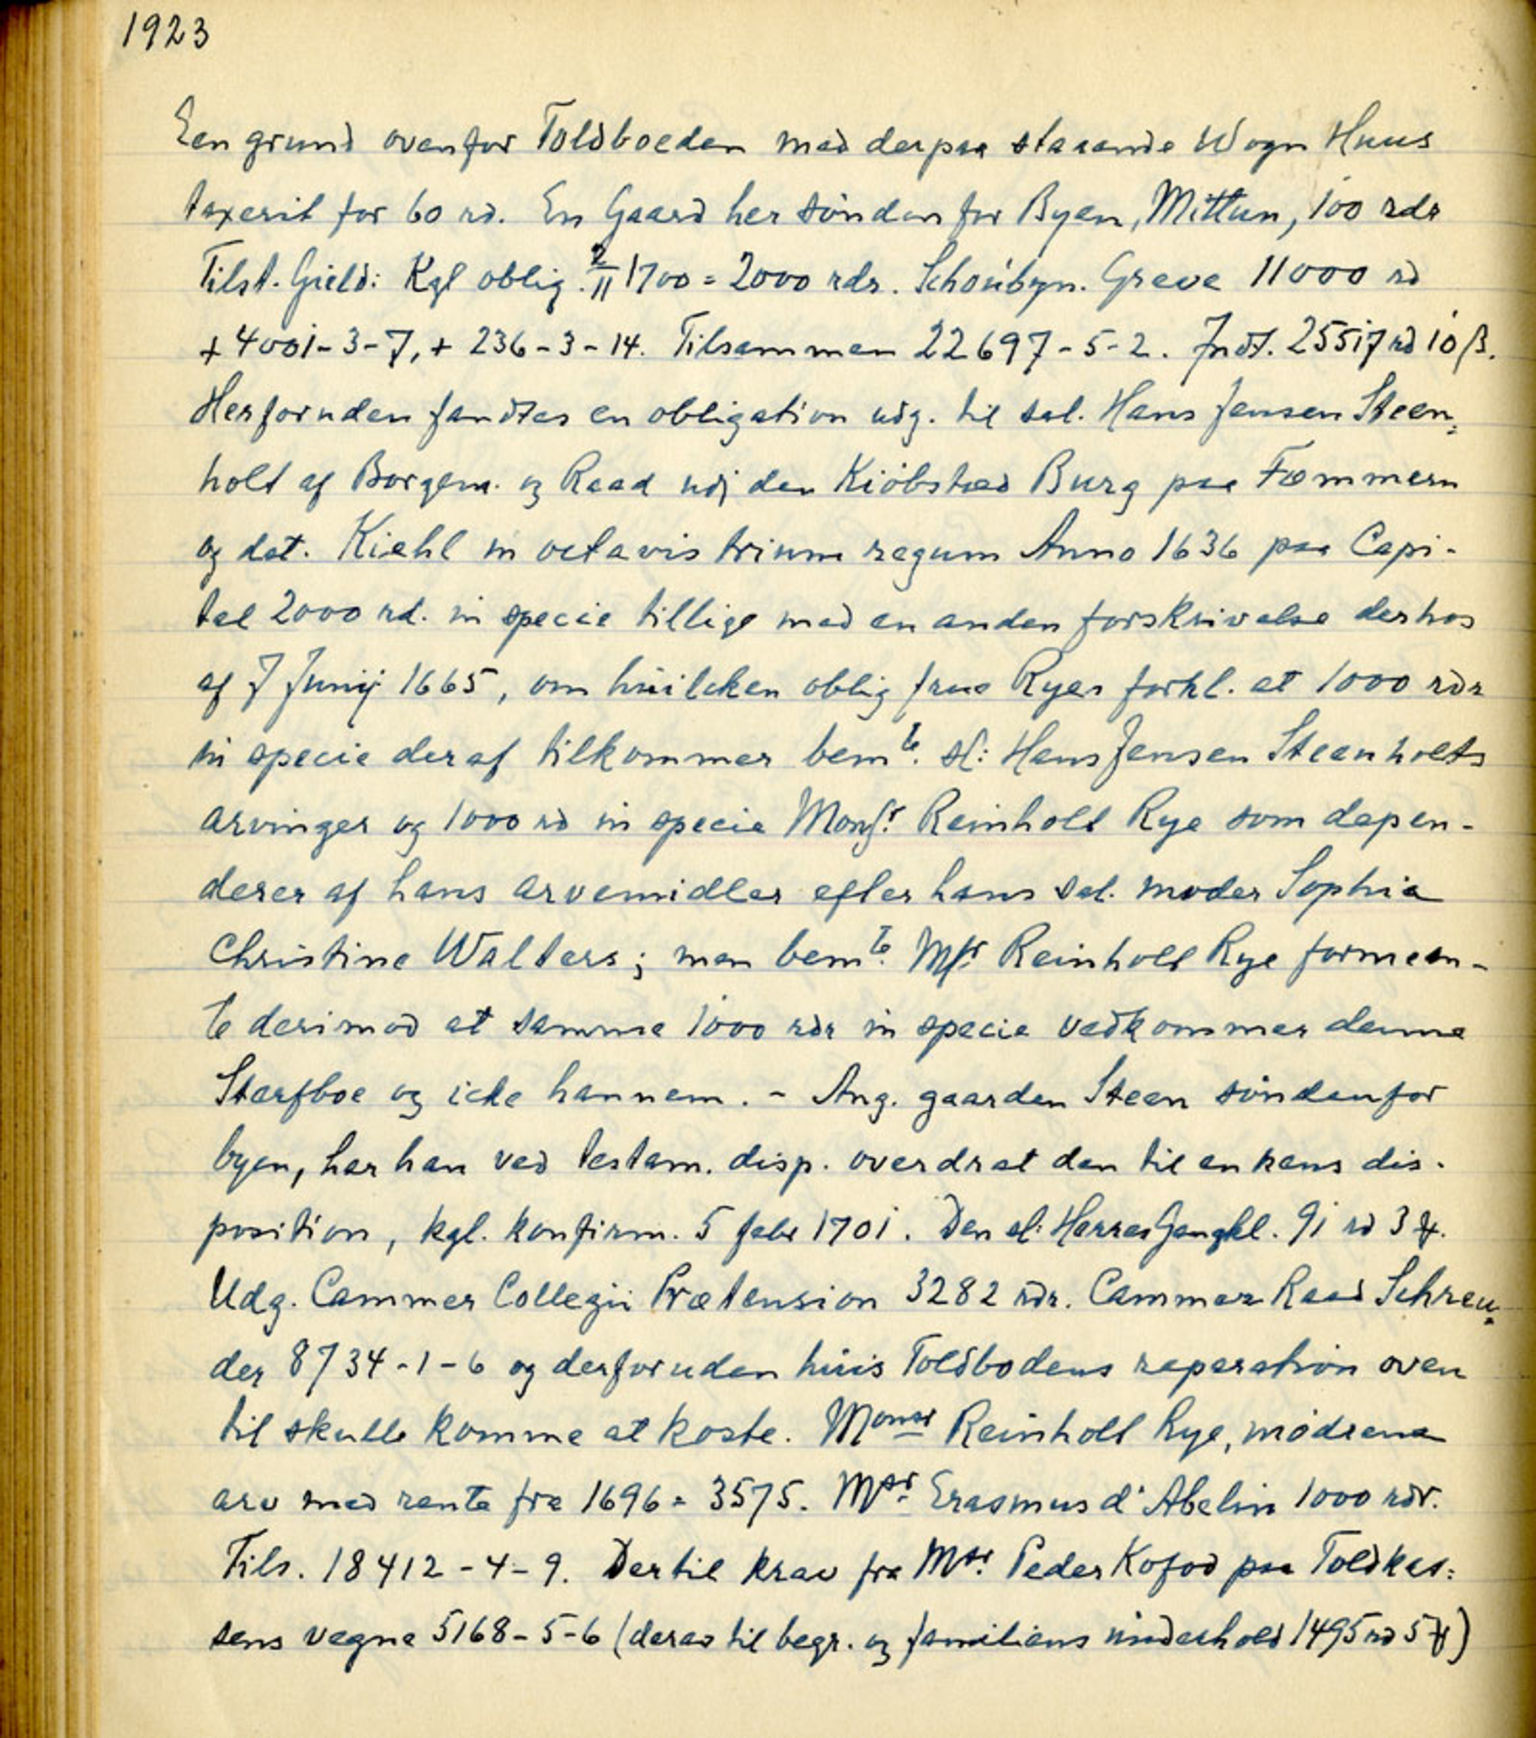 1923
Een grund ovenfor Toldboeden med derpaa staaende Wogn Huus
taxerit for 60 rd. En Gaard her sönden for Byen, Mittun, 100 rdr
Tilst. Gield: Kgl oblig. 2/11 1700 = 2000 rdr. Greve 11000 rd
+ 4001-3-7, + 236-3-14. Tilsammen 22697-5-2. Indt. 25517 rd 10 β.
Herforuden fandtes en obligation udg. til sal. Hans Jensen Steen-
holt af Borgem. og Raad udj den Kiöbsted Burg paa Femmern
og dat. Kiehl in octavis trium regum Anno 1636 paa Capi-
tal 2000 rd. in specie tillige med en anden forskrivelse derhos
af 7 Junij 1665, om huilcken oblig frue Ryes forkl. at 1000 rdr
in specie deraf tilkommer bemte. sl: Hans Jensen Steenholts
arvinger og 1000 rd in specie Monsr. Reinholt Rye som depen-
derer af hans arvemidler efter hans sal. moder Sophia
Christine Walters; men bemte. Msr. Reinholt Rye formeen-
te derimod at samme 1000 rdr in specie vedkommer denne
Sterfboe og icke hannem. - Ang. gaarden Steen söndenfor
byen, har han ved testam. disp. overdrat den til enkens dis-
position, kgl. konfirm. 5 febr 1701. Den sl. Herres 91 rd 3 ꝟ.
Udg. Cammer Collegii Prætension 3282 rdr. Cammer Raad Schreu-
der 8734-1-6 og desforuden huis Toldbodens reparation oven
til skulle komme at koste. Monsr Reinholt Rye, mödrene
arv med rente fra 1696 = 3575. Msr. Erasmus d'Abelin 1000 rdr.
Tils. 18412-4-9. Dertil krav fra Msr. Peder Kofod paa Toldkas-
sens vegne 5168-5-6 (derav til begr. og familiens underhold 1495 rd 5 ꝟ)